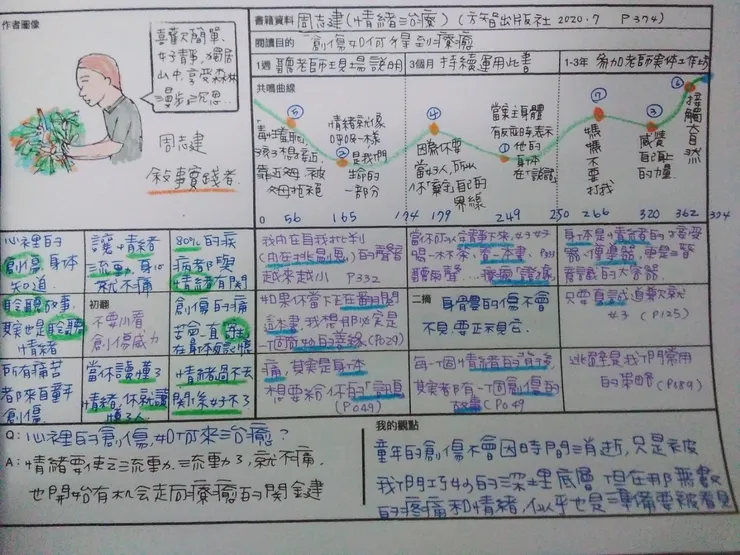 作者圖像
書籍資料 周志建(情緒治療)(方智出版社 2020.7 P374)
閱讀目的 創傷如何得到療癒
1週 聽老師現場說明
3個月 持續運用此書
1-3年 參加老師實体工作坊
喜歡簡單、
好靜,獨居
山中,享受森林
漫步沉思...
周志建
敘事實踐者
共鳴曲線
⑤
②
情緒就像
呼吸一樣
是我們
生命的
一部分
④
因為你要
當好人,所以
你「棄守」自己的
界線
①
當案主身體
有反應時,表示
他的
身体
在「說話」
⑦
媽媽
不要
打我
③
感覺
自己
的力
量
⑥
接觸大自然
0 56 165 194 179 249 250 266 320 362 374
心裡的
創傷,身体
知道
讓情緒
流動,身心
就不痛
80%的疾
病都與
情緒有關
我內在自我批判
(內在挑剔鬼)的聲音
越來越小 P332
身体是情緒的接受
器、傳導器,更是一啓
意識的大容器
聆聽故事,
其實也是聆聽
情緒
初翻
不要小看
創傷威力
創傷的痛
苦會一直
如果你當下正在翻閱
這本書,我想那必定是
一個該死的善緣(P029)
二摘
身體裡的傷不會
不見,要正來見它.
只要真誠道歉就
好 (P125)
所有痛苦
都來自童年
創傷
當你讀懂了
情緒,你就讀
懂了人
情緒過不去
關係好不了
痛,其實是身体
想要給你的「訊息」
(P049)
每一個情緒的背後,
其實都有一個創傷的
故事(P049
逃避是我們常用
的策略(P189)
Q: 心裡的創傷如何來治癒?
A: 情緒要使之流動.流動了,就不痛.
也開始有机会走向療癒的關鍵
我的觀點
童年的創傷不會因時間消逝,只是被
我們巧妙的深埋底層,但在那無數
的疼痛和情緒,似乎也是準備要被看見